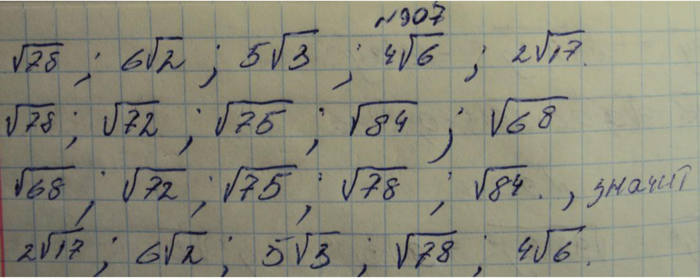 №907
√78 ; 6√2 ; 5√3 ; 4√6 ; 2√17.
√78 ; √72 ; √75 ; √84 ; √68
√68 ; √72 ; √75 ; √78 ; √84. , значит
2√17 ; 6√2 ; 5√3 ; √78 ; 4√6.